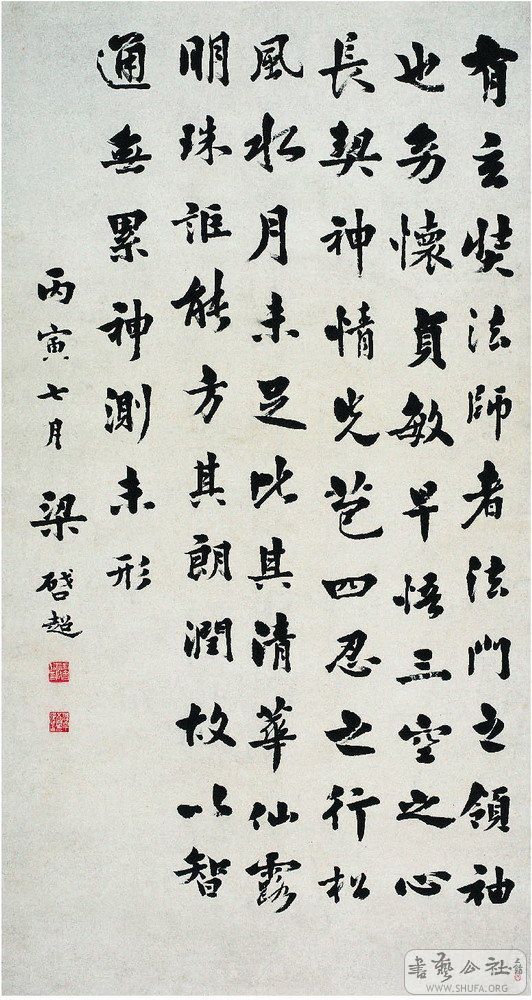 有玄奘法師者法門之領袖
也幼懷貞敏早悟三空之心
長契神情先苞四忍之行松
風水月未足比其清華仙露
明珠詎能方其朗潤故以智
通無累神測未形
丙寅七月 梁啓超
書藝公社
WWW.SHUFA.ORG